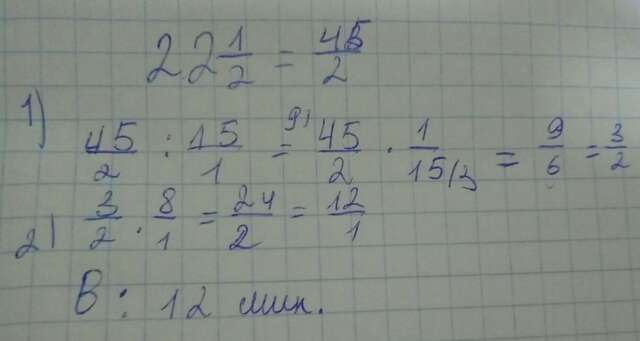 22 1/2 = 45/2
1) 45/2 : 15/1 = 9| 45/2 · 1/15/3 = 9/6 = 3/2
2) 3/2 · 8/1 = 24/2 = 12/1
В: 12 мин.